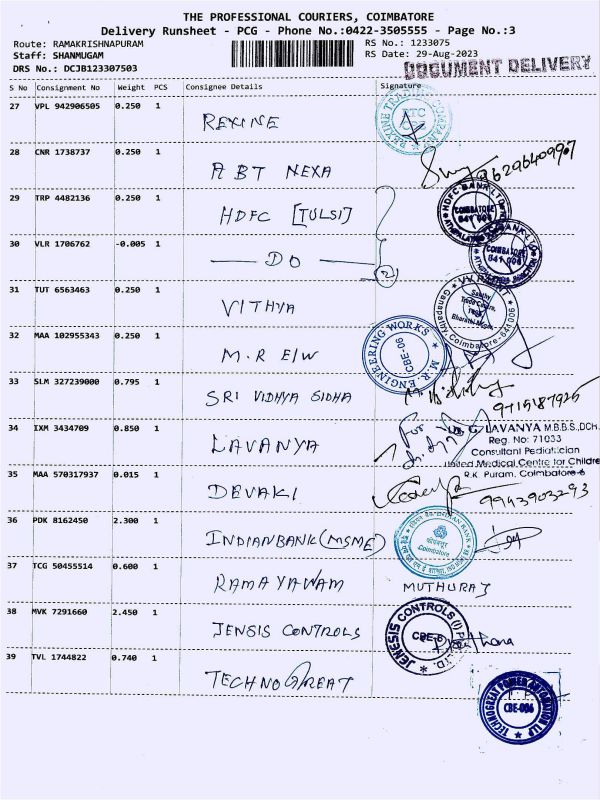 THE PROFESSIONAL COURIERS, COIMBATORE
Delivery Runsheet - PCG - Phone No.:0422-3505555 - Page No.:3
Route: RAMAKRISHNAPURAM
RS No.: 1233075
Staff: SHANMUGAM
RS Date: 29-Aug-2023
DRS No.: DCJB123307503
DOCUMENT DELIVERY
S No Consignment No Weight PCS Consignee Details Signature
27 VPL 942906505 0.250 1
REXINE
REXINE TRADING COMPANY
RTC
28 CNR 1738737 0.250 1
ABT NEXA
29 TRP 4482136 0.250 1
HDFC [TULSI]
HDFC BANK LTD
COIMBATORE
641 006
30 VLR 1706762 -0.005 1
DO
2
BANK LTD
COIMBATORE
641 006
31 TUT 6563463 0.250 1
VITHYA
Ganapathy, Coimbatore - 641 006
32 MAA 102955343 0.250 1
M.R E/W
M.R. ENGINEERING WORKS
CBE-06
33 SLM 327239000 0.795 1
SRI VIDHYA SIDHA
34 IXM 3434709 0.850 1
LAVANYA
For
G. LAVANYA M.B.B.S.,DCH.
Reg. No: 71033
Consultant Pediatrician
United Medical Centre for Children
R.K Puram, Coimbatore-6
35 MAA 570317937 0.015 1
DEVAKI
9943903293
36 PDK 8162450 2.300 1
INDIANBANK (MSME)
INDIAN BANK
Coimbatore
37 TCG 50455514 0.600 1
RAMAYAWAM
MUTHURAJ
38 MVK 7291660 2.450 1
JENSIS CONTROLS
JENESIS CONTROLS (I) P LTD.
CBE-6
39 TVL 1744822 0.740 1
TECHNOGREAT
TECHNOGREAT POWER AUTOMATION LLP
CBE-006